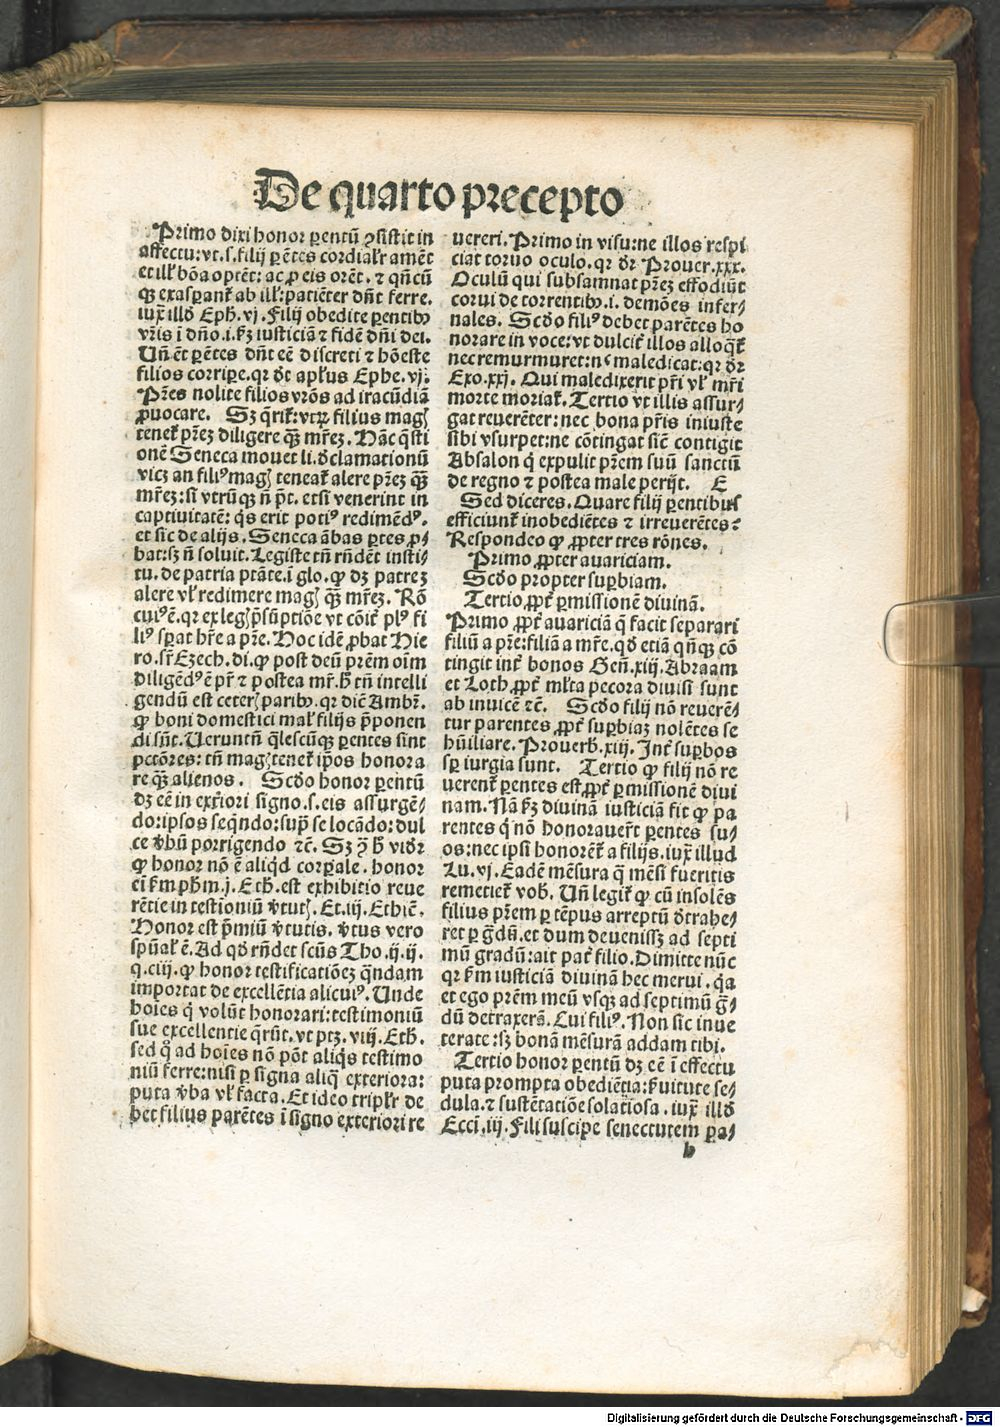 De quarto precepto
Primo dixi honor parentũ ꝯsistit in
affectu: vt.s.filij parẽtes cordialr̃ amẽt
et ill' bõa optẽt: ac ꝓ eis orẽt. ⁊ qñ cũ
qꝫ exasperant̃ ab ill': patiẽter dñt ferre.
iux̃ illđ Eph. vj. Filij obedite ꝑentibꝰ
vr̃is ĩ dño .i. ꝑm̃ iusticiã ⁊ fidẽ dñi dei.
Uñ et̃ ꝑẽtes dñt eẽ discreti ⁊ hõeste
filios corriꝑe. qr d̃t apl'us Ephe. vj.
Pr̃es nolite filios vr̃os ad iracũdiã
ꝓuocare. Sꝫ q̃rit̃: vtꝝ filius mag̃
tenet̃ pr̃eꝫ diligere qꝫ̃ mr̃eꝫ. Nãc q̃sti
onẽ Seneca mouet li. d̃clamationũ
vicꝫ an filiꝰ mag̃ teneat̃ alere pr̃eꝫ qꝫ̃
mr̃eꝫ: si vtrũqꝫ ñ p̃t. etsi venerint in
captiuitatẽ: q̃s erit potiꝰ redimẽdꝰ.
et sic de alijs. Seneca ãbas ꝑtes ꝓ-
bat: sꝫ ñ soluit. Legiste tñ rñdẽt insti-
tu. de patria ptãte. ĩ glo. ꝙ dꝫ patreꝫ
alere vl' redimere mag̃ qꝫ̃ mr̃eꝫ. Rõ
cuiꝰ ẽ. qr ex leg̃ p̃sũptiõe vt cõit̃ plꝰ fi
liꝰ sꝑat hr̃e a pr̃e. Hoc idẽ ꝓbat Hie
ro. sr̃ Ezech. di. ꝙ post deũ pr̃em oĩm
diligẽdꝰ ẽ pr̃ ⁊ postea mr̃. h̃ tñ intelli
gendũ est ceteꝝ̃ paribꝰ. qr dic̃ Ambr̃.
ꝙ boni domestici mal' filijs p̃ponen
di sñt. Ueruntñ q̃lescũqꝫ ꝑentes sint
pctõres: tñ mag̃ tenet̃ ip̃os honora
re qꝫ̃ alienos. Scđo honor ꝑentũ
dꝫ eẽ in ext̃iori signo .s. eis assurgẽ-
do: ipsos seq̃ndo: sup̃ se locãdo: dul
ce v̓bũ porrigendo ⁊c̃. Sꝫ ꝯ̃ h̃ vid̃r
ꝙ honor nõ ẽ aliqđ corꝑale. honor
ei ẽm ph̃m .j. Eth. est exhibitio reue
rẽtie in testioniũ v̓tut̃. Et .iij. Ethic̃.
Honor est p̃miũ v̓tutis. v̓tus vero
spũal' ẽ. Ad qđ rñdet scũs Tho. ij. ij.
q. ciij. ꝙ honor testificatiõeꝫ q̃ndam
importat de excellẽtia alicuiꝰ. Unde
hoĩes q̃ volũt honorari: testimoniũ
sue excellentie q̃rũt. vt ptꝫ. viij. Eth.
sed q̃ ad hoĩes nõ põt aliq̃s testimo
niũ ferre: nisi ꝑ signa aliq̃ exteriora:
puta v̓ba vl' facta. Et ideo tripl'r de
bet filius parẽtes ĩ signo exteriori re
uereri. Primo in visu: ne illos respi
ciat toruo oculo. qr d̃r Prouer. xxx.
Oculũ qui subsannat pr̃eꝫ effodiũt
corui de torrentibꝰ .i. demões infer-
nales. Scđo filiꝰ debet parẽtes ho
norare in voce: vt dulcit̃ illos alloqt̃
nec remurmuret: nec maledicat: qr d̃r
Exo. xxj. Qui maledixerit pr̃i vl' mr̃i
morte moriat̃. Tertio vt illis assur-
gat reuerẽter: nec bona pr̃is iniuste
sibi vsurpet: ne cõtingat sicut contigit
Absalon q̃ expulit pr̃em suũ sanctũ
de regno ⁊ postea male perijt. E
Sed diceres. Quare filij ꝑentibus
efficiunt̃ inobediẽtes ⁊ irreuerẽtes?
Respondeo ꝙ ꝓpter tres rõnes.
Primo ꝓpter auariciam.
Scđo propter suꝑbiam.
Tertio ꝓpt̃ ꝑmissionẽ diuinã.
Primo ꝓpt̃ auariciã q̃ facit separari
filiũ a pr̃e: filiã a mr̃e. qđ etiã qñqꝫ cõ
tingit int̃ bonos Geñ. xiij. Abraam
et Loth ꝓpt̃ ml'ta pecora diuisi sunt
ab inuicẽ ⁊c̃. Scđo filij nõ reuerẽ-
tur parentes ꝓpt̃ suꝑbiaꝫ nolẽtes se
hũiliare. Prouerb̃. xiij. Int̃ suꝑbos
sꝑ iurgia sunt. Tertio ꝙ filij nõ re
uerent̃ ꝑentes est ꝓpt̃ ꝑmissionẽ diui
nam. Nã ꝑm̃ diuinã iusticiã fit ꝙ pa
rentes q̃ nõ honorauer̃t ꝑentes su-
os: nec ipsi honorẽt̃ a filijs. iux̃ illud
Lu. vj. Eadẽ mẽsura q̃ mẽsi fueritis
remetiet̃ vob̃. Uñ legit̃ ꝙ cũ insolẽs
filius pr̃em ꝑ tẽpus arreptũ d̃trahe-
ret ꝑ g̃dũ. et dum deuenissꝫ ad septi
mũ gradũ: ait pat̃ filio. Dimitte nũc
qr ẽm iusticiã diuinã hec merui. q̃a
et ego pr̃em meũ vsqꝫ ad septimũ g̃-
dũ detraxerã. Cui filiꝰ. Non sic inue
terate: sꝫ bonã mẽsurã addam tibi.
Tertio honor ꝑentũ dꝫ eẽ ĩ effectu
puta prompta obediẽtia: ẽuitute se-
dula. ⁊ sustẽtatiõe solatiosa. iux̃ illđ
Ecci. iij. Fili suscipe senectutem pa-
b
Digitalisierung gefördert durch die Deutsche Forschungsgemeinschaft - DFG